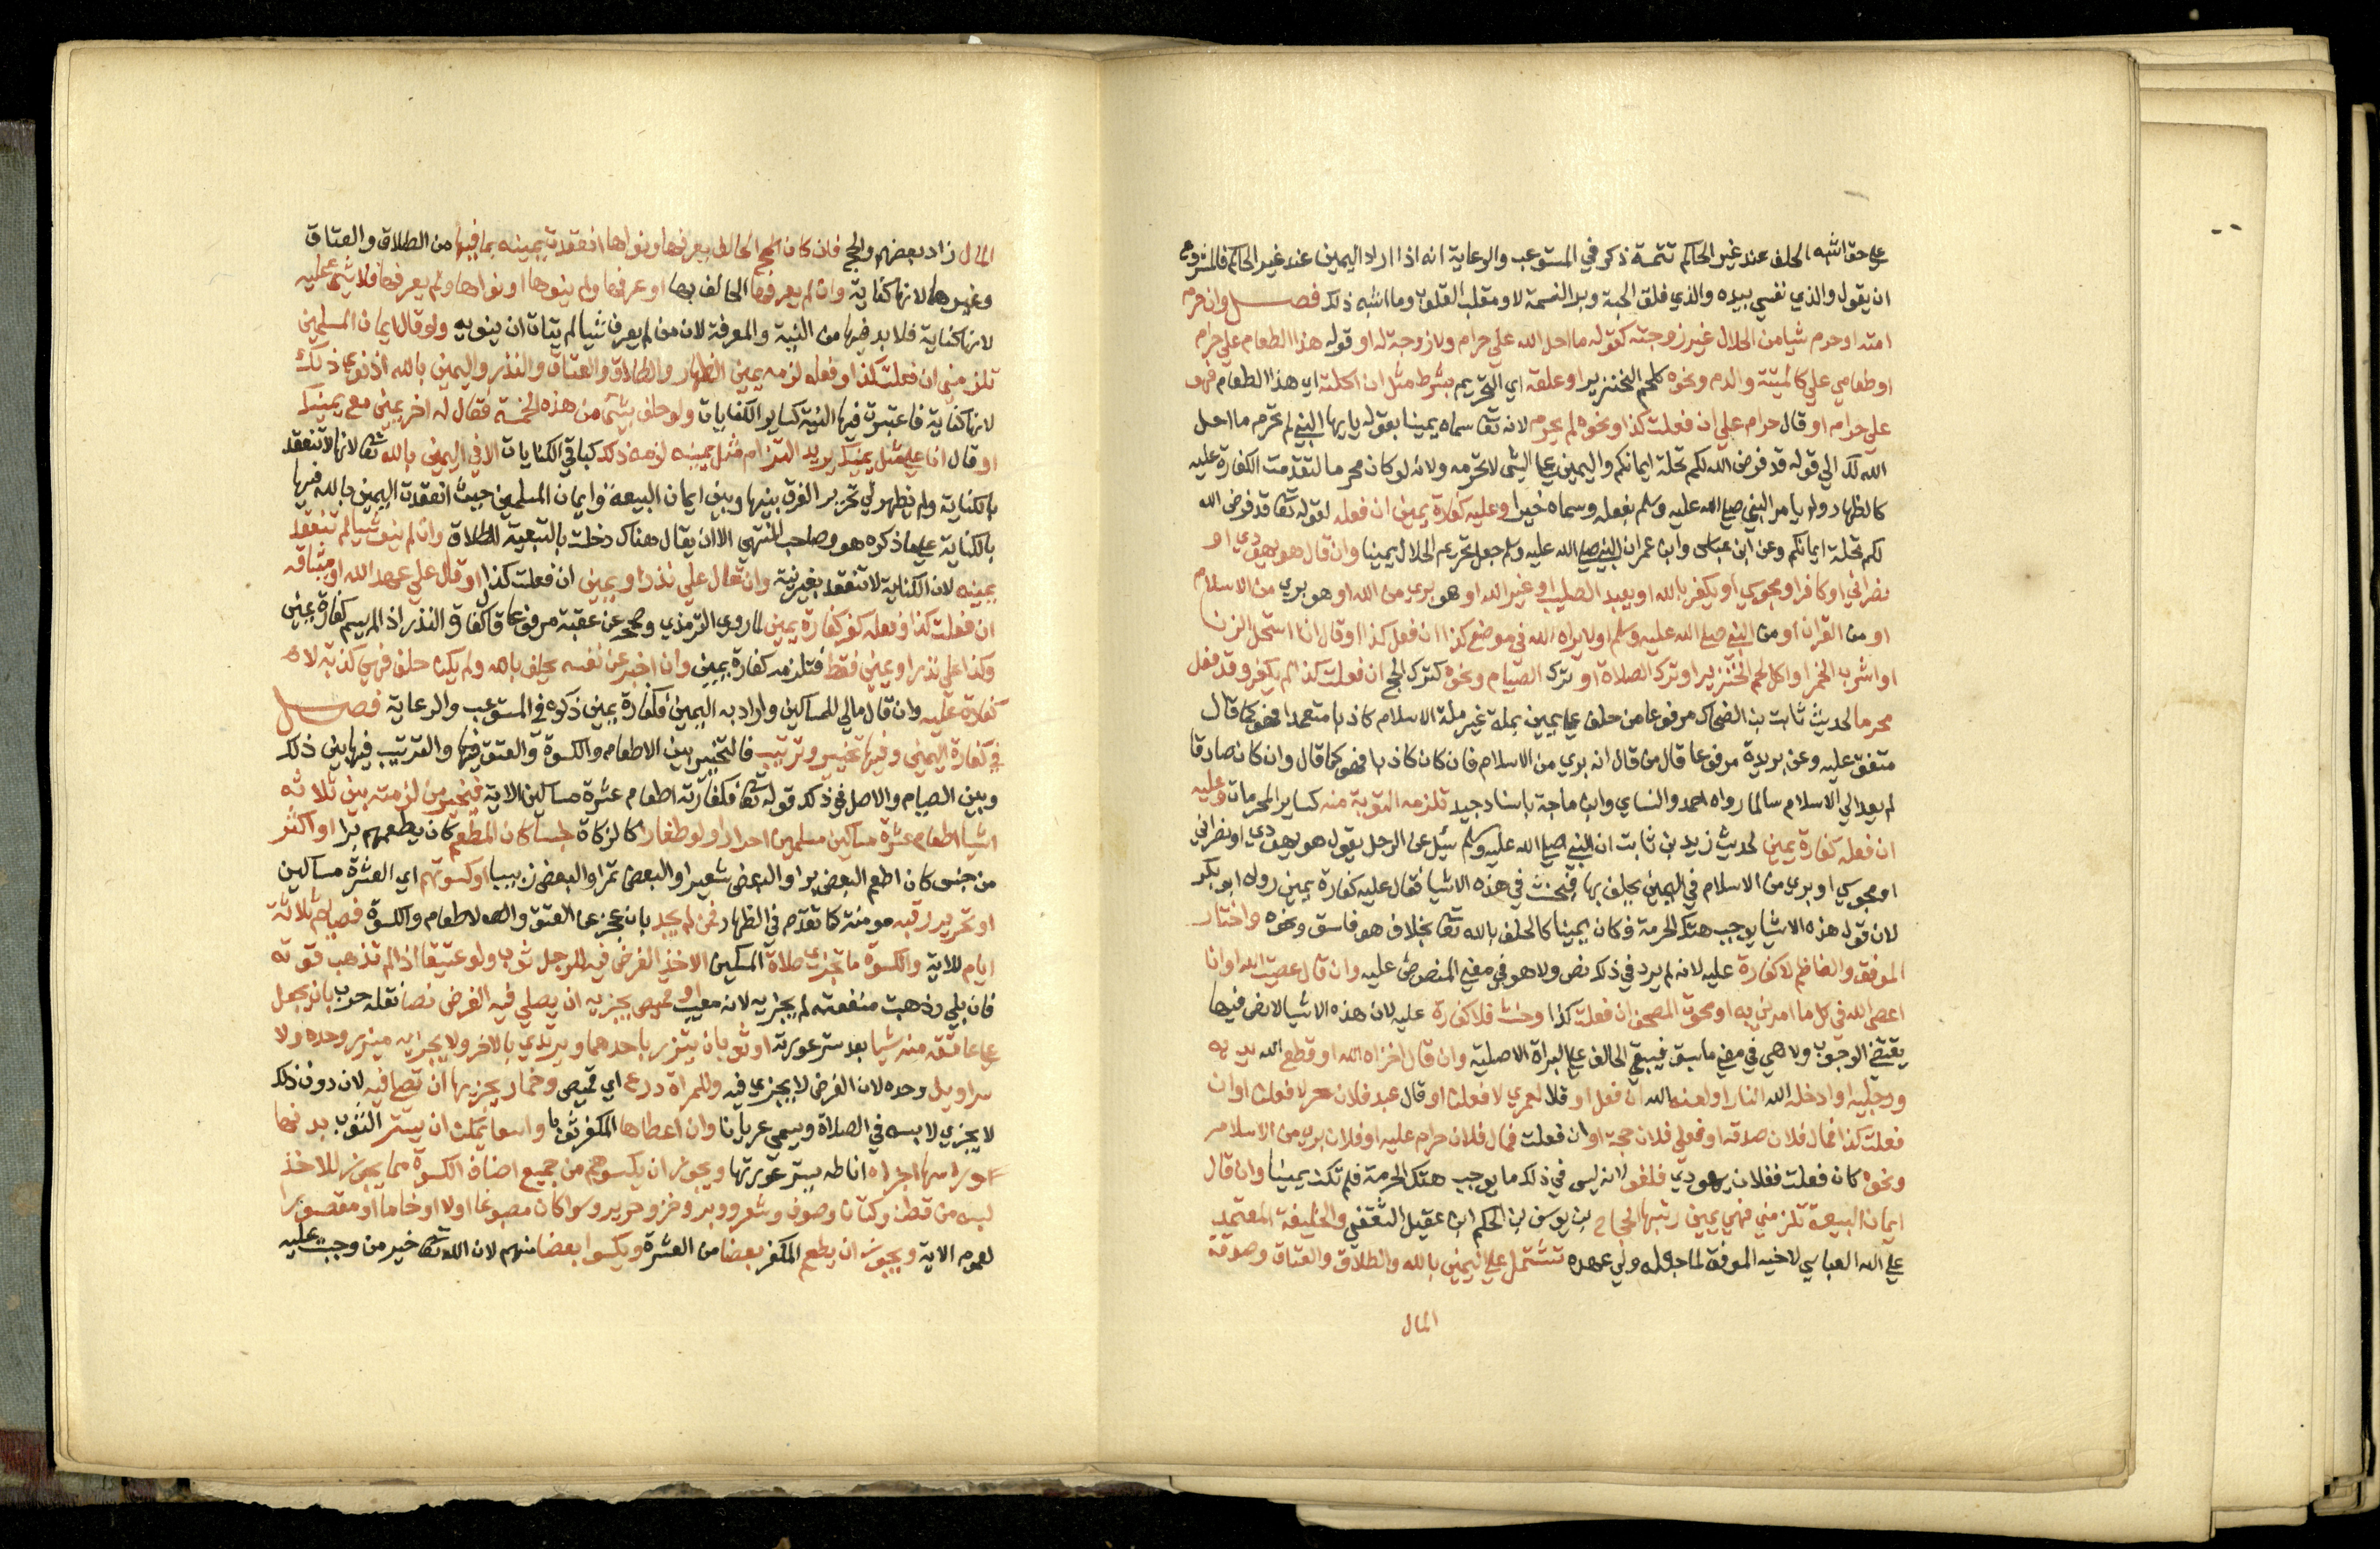 علي حق اشبه الحلف عند غير الحاكم تتمة ذكر في المستوعب والرعاية انه اذا اراد اليمين عند غير الحاكم فالمشروع
ان يقول والذي نفسي بيده والذي فلق الحبة وبرا النسمة لا ومقلب القلوب وما اشبه ذلك فصل وان حرم
امته او حرم شيا من الحلال غير زوجته كقوله ما احل الله علي حرام ولا زوجة له او قوله هذا الطعام علي حرام
او طعامي علي كالميتة والدم ونحوه كلحم الخنزير او علقه اي التحريم بشرط مثل ان اكلته اي هذا الطعام فهو
علي حرام او قال حرام علي ان فعلت كذا ونحوه لم يحرم لانه تعالى سماه يمينا بقوله يا ايها النبي لم تحرم ما احل
الله لك الي قوله قد فرض الله لكم تحلة ايمانكم واليمين علي الشي لا تحرمه ولانه لو كان محرما لتقدمت الكفارة عليه
كالظهار ولم يامر النبي صلي الله عليه وسلم بفعله وسماه خيرا وعليه كفارة يمين ان فعله لقوله تعالى قد فرض الله
لكم تحلة ايمانكم وعن ابن عباس وابن عمر ان النبي صلي الله عليه وسلم جعل تحريم الحلال يمينا وان قال هو يهودي او
نصراني او كافر او مجوسي او يكفر بالله او يعبد الصليب او غير الله او هو بري من الله او هو بري من الاسلام
او من القران او من النبي صلي الله عليه وسلم او لا يراه الله في موضع كذا ان فعل كذا او قال انا استحل الزنا
او اشرب الخمر او اكل لحم الخنزير او ترك الصلاة او ترك الصيام ونحوه كترك الحج ان فعلت كذا لم يكفر وقد فعل
محرما لحديث ثابت بن الضحاك مرفوعا من حلف علي يمين بملة غير ملة الاسلام كاذبا متعمدا فهو كما قال
متفق عليه وعن بريدة مرفوعا قال من قال انه بري من الاسلام فان كان كاذبا فهو كما قال وان كان صادقا
لم يعد الي الاسلام سالما رواه احمد والنساي وابن ماجة باسناد جيد تلزمه التوبة منه كساير المحرمات وعليه
ان فعله كفارة يمين لحديث زيد بن ثابت ان النبي صلي الله عليه وسلم سئل عن الرجل يقول هو يهودي او نصراني
او مجوسي او بري من الاسلام في اليمين يحلف بها فيحنث في هذه الاشيا فقال عليه كفارة يمين رواه ابو بكر
لان قوله هذه الاشيا يوجب هتك الحرمة فكان يمينا كالحلف بالله تعالى بخلاف هو فاسق ونحوه واختار
الموفق والناظم لا كفارة عليه لانه لم يرد في ذلك نص ولا هو في معني المنصوص عليه وان قال عصيت الله او انا
اعصي الله في كل ما امرني به او محوت المصحف ان فعلت كذا وحنث فلا كفارة عليه لان هذه الاشيا لا نص فيها
يقتضي الوجوب ولا هي في معني ما سبق فيبقي الحالف علي البراة الاصلية وان قال اخزاه الله او قطع الله يديه
ورجليه او ادخله الله النار او لعنه الله ان فعل او قال لعمري لا فعلت او قال عبد فلان حر لا فعلت او ان
فعلت كذا فمال فلان صدقة او فعلي فلان حجة او ان فعلت فمال فلان حرام عليه او فلان بري من الاسلام
ونحوه كان فعلت ففلان يهودي فلغو لانه ليس في ذلك ما يوجب هتك الحرمة فلم تكن يمينا وان قال
ايمان البيعة تلزمني فهي يمين رتبها الحجاج بن يوسف بن الحكم ابن عقيل الثقفي والخليفة المعتمد
علي الله العباسي لاخيه الموفق لما جعله ولي عهده تشتمل علي اليمين بالله والطلاق والعتاق وصدقة
المال
المال زاد بعضهم والحج فان كان الحالف يعرفها ونواها انعقدت يمينه بما فيها من الطلاق والعتاق
وغيرها لانها كناية وان لم يعرفها الحالف بها او عرفها ولم ينوها او نواها ولم يعرفها فلا شي عليه
لانها كناية فلا بد فيها من النية والمعرفة لان من لم يعرف شيا لم يتات ان ينويه ولو قال ايمان المسلمين
تلزمني ان فعلت كذا وفعله لزمه يمين الظهار والطلاق والعتاق والنذر واليمين بالله اذ نوي ذلك
لانها كناية فاعتبرت فيها النية كساير الكنايات ولو حلف بشي من هذه الخمسة فقال له اخر يميني مع يمينك
او قال انا علي مثل يمينك يريد التزام مثل يمينه لزمه ذلك كباقي الكنايات الا في اليمين بالله تعالى لانها لا تنعقد
بالكناية ولم يظهر لي تحرير الفرق بينها وبين ايمان البيعة وايمان المسلمين حيث انعقدت اليمين بالله فيها
بالكناية علي ما ذكره هو وصاحب المنتهي الا ان يقال هناك دخلت بالتبعية للطلاق وان لم ينو شيا لم تنعقد
يمينه لان الكناية لا تنعقد بغير نية وان قال علي نذر او يمين ان فعلت كذا او قال علي عهد الله او ميثاقه
ان فعلت كذا وفعله كفر كفارة يمين لما روي الترمذي وصححه عن عقبة مرفوعا قال كفارة النذر اذا لم يسم كفارة يمين
وكذا علي نذر او يمين فقط فتلزمه كفارة يمين وان اخبر عن نفسه بحلف بالله ولم يكن حلف فهي كذبة لا
كفارة عليه وان قال مالي للمساكين واراد به اليمين فكفارة يمين ذكره في المستوعب والرعاية فصل
في كفارة اليمين وفيها تخيير وترتيب فالتخيير بين الاطعام والكسوة والعتق فيها والترتيب فيها بين ذلك
وبين الصيام والاصل في ذلك قوله تعالى فكفارته اطعام عشرة مساكين الاية فيخير من لزمته بين ثلاثة
اشيا اطعام عشرة مساكين مسلمين احرارا ولو صغارا كالزكاة جنسا كان المطعم كان يطعمهم برا او اكثر
من جنس كان اطعم البعض برا والبعض شعيرا والبعض تمرا والبعض زبيبا او كسوتهم اي العشرة مساكين
او تحرير رقبة مومنة كما تقدم في الظهار فمن لم يجد بان عجز عن العتق والاطعام والكسوة فصيام ثلاثة
ايام للاية والكسوة ما تجزي صلاة المسكين الاخذ الفرض فيه للرجل ثوب ولو عتيقا اذا لم تذهب قوته
فان بلي وذهبت منفعته لم يجزيه لانه معيب او قميص يجزيه ان يصلي فيه الفرض نصا نقله حرب بان يجعل
علي عاتقه منه شيا بعد ستر عورته او ثوبان يتزر باحدهما ويرتدي بالاخر ولا يجزيه ميزر وحده ولا
سراويل وحده لان الفرض لا يجزي فيه وللمراة درع اي قميص وخمار يجزيها ان تصلي فيه لان دون ذلك
لا يجزي لابسه في الصلاة ويسمي عريانا وان اعطاها المكفر ثوبا واسعا يمكن ان يستر الثوب بدنها
وراسها اجزاه اناطه بستر عورتها ويجوز ان يكسوهم من جميع اصناف الكسوة مما يجوز للاخذ
لبسه من قطن وكتان وصوف وشعر ووبر وخز وحرير وسوا كان مصبوغا اولا او خاما او مقصورا
لعموم الاية ويجوز ان يطعم المكفر بعضا من العشرة ويكسوا بعضا منهم لان الله تعالى خير من وجبت عليه